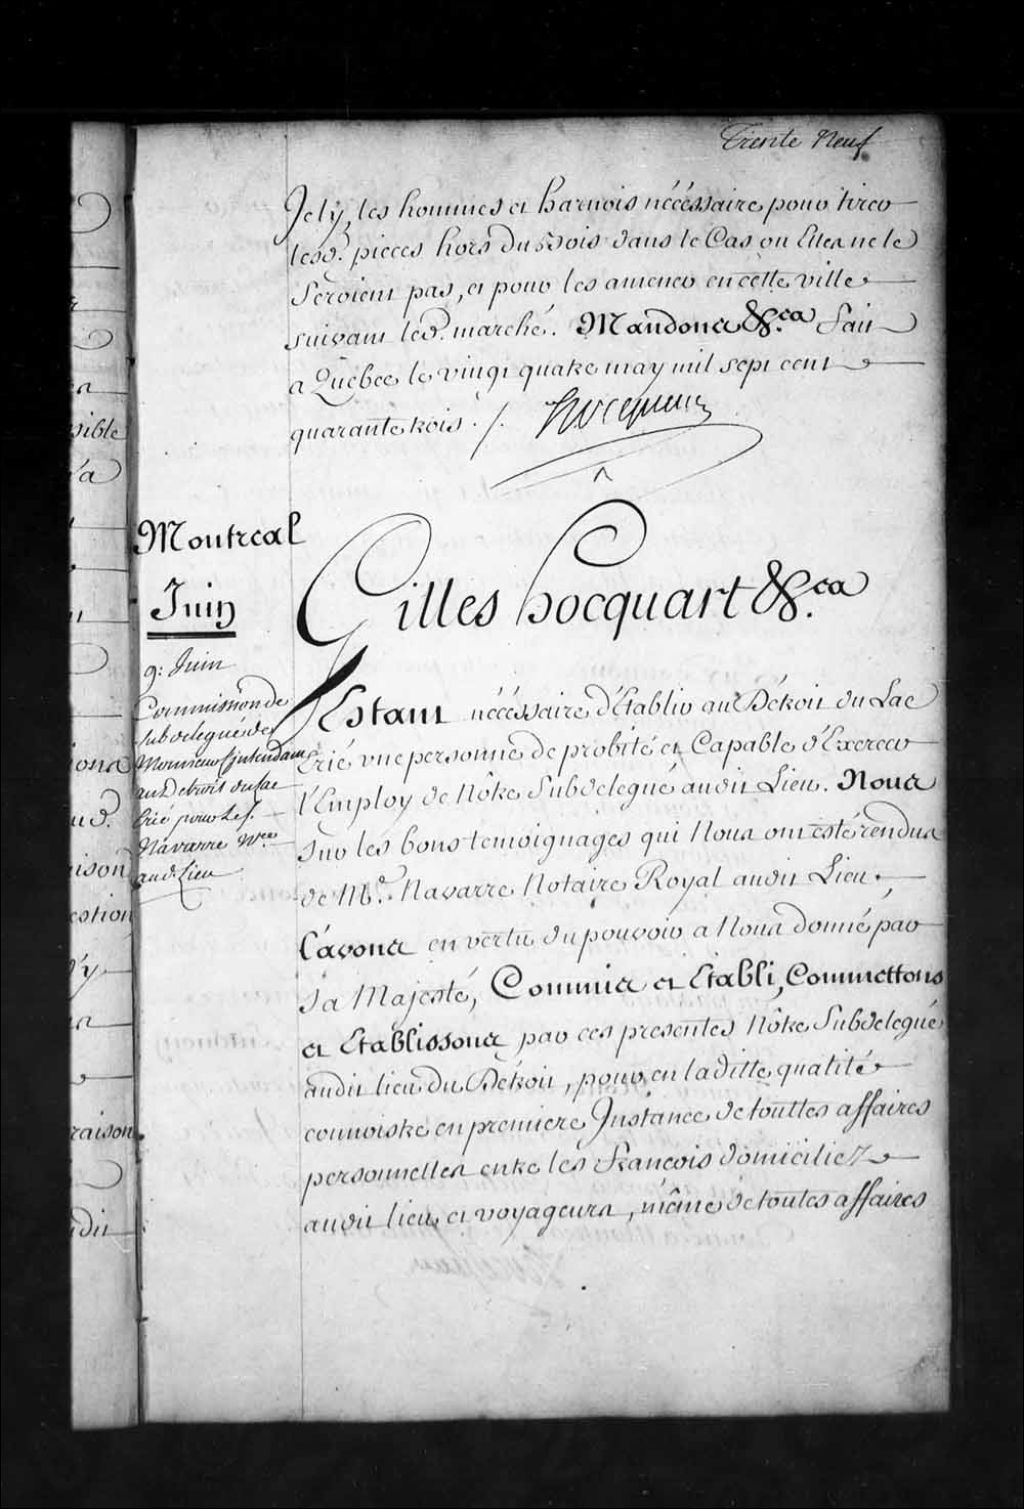 Trente Neuf
Jcly, les hommes et harnois nécéssaire pour tirer
lesd. pieces hors du Bois dans le Cas ou Elles ne le
Seroient pas, et pour les amener en cette ville
suivant led. marché. Mandons &.ca Fait
a Quebec le vingt quatre may mil sept cent
quarante trois. /. Hocquart
Montreal
Juin
9: Juin
Commission de
subdelegué de
Monsieur L'intendant
au Detroit du lac
Erié pour le S.
Navarre N.re
aud. Lieu
Gilles hocquart &.ca
Estant nécéssaire d'Etablir au Détroit du Lac
Erié une personne de probité et Capable d'Exercer
l'Employ de Nôtre Subdelegué audit Lieu. Nous
sur les bons temoignages qui Nous ont esté rendus
de M.e Navarre Notaire Royal audit Lieu.,
L'avons en vertu du pouvoir a Nous donné par
Sa Majesté, Commis et Etabli, Commettons
et Etablissons par ces presentes Nôtre Subdelegué
audit lieu du Détroit, pour en laditte qualité
connoistre en premiere Instance de touttes affaires
personnelles entre les François domiciliez
audit lieu et voyageurs, même de toutes affaires
sible
la
ons
ud.
ison
estion
d'y
raison
udit